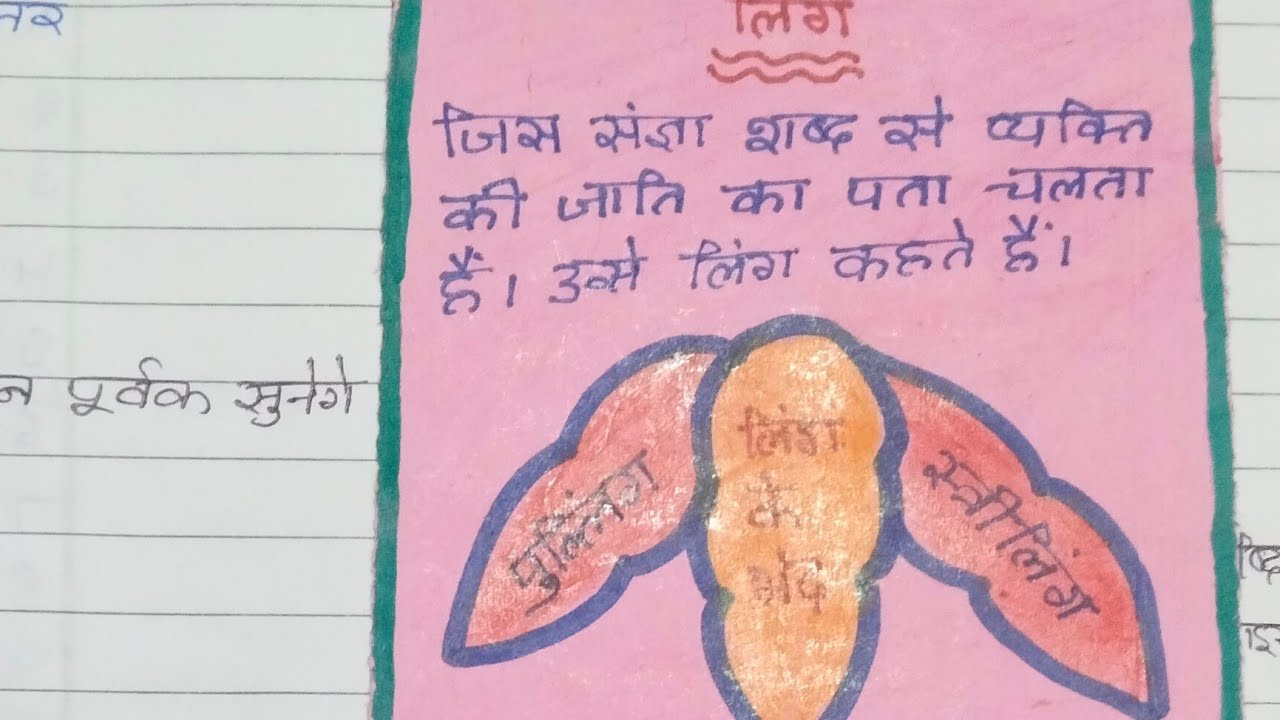 लिंग
जिस संज्ञा शब्द से व्यक्ति
की जाति का पता चलता
हैं। उसे लिंग कहते हैं।
पूर्वक सुनेगे
पुल्लिंग
लिंग
के
भेद
स्त्रीलिंग